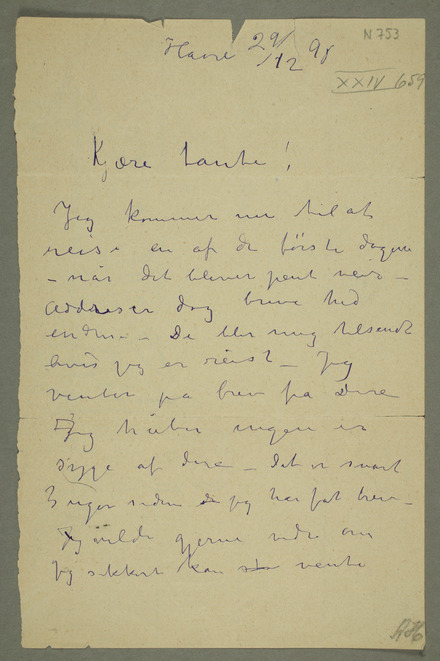 N 753
Havre 29/12 98
XXIV 659
Kjære tante!
Jeg kommer nu til at
reise en af de første dagene
– når det bliver pent veir –
Addreser dog breve hid
endnu – De blir mig tilsendt
hvis jeg er reist – Jeg
venter på brev fra Dere
Jeg håber ingen er
syge af dere – Det er snart
3 uger siden jeg har fåt brev –
Jeg vilde gjerne vide om
jeg sikkert kan vente